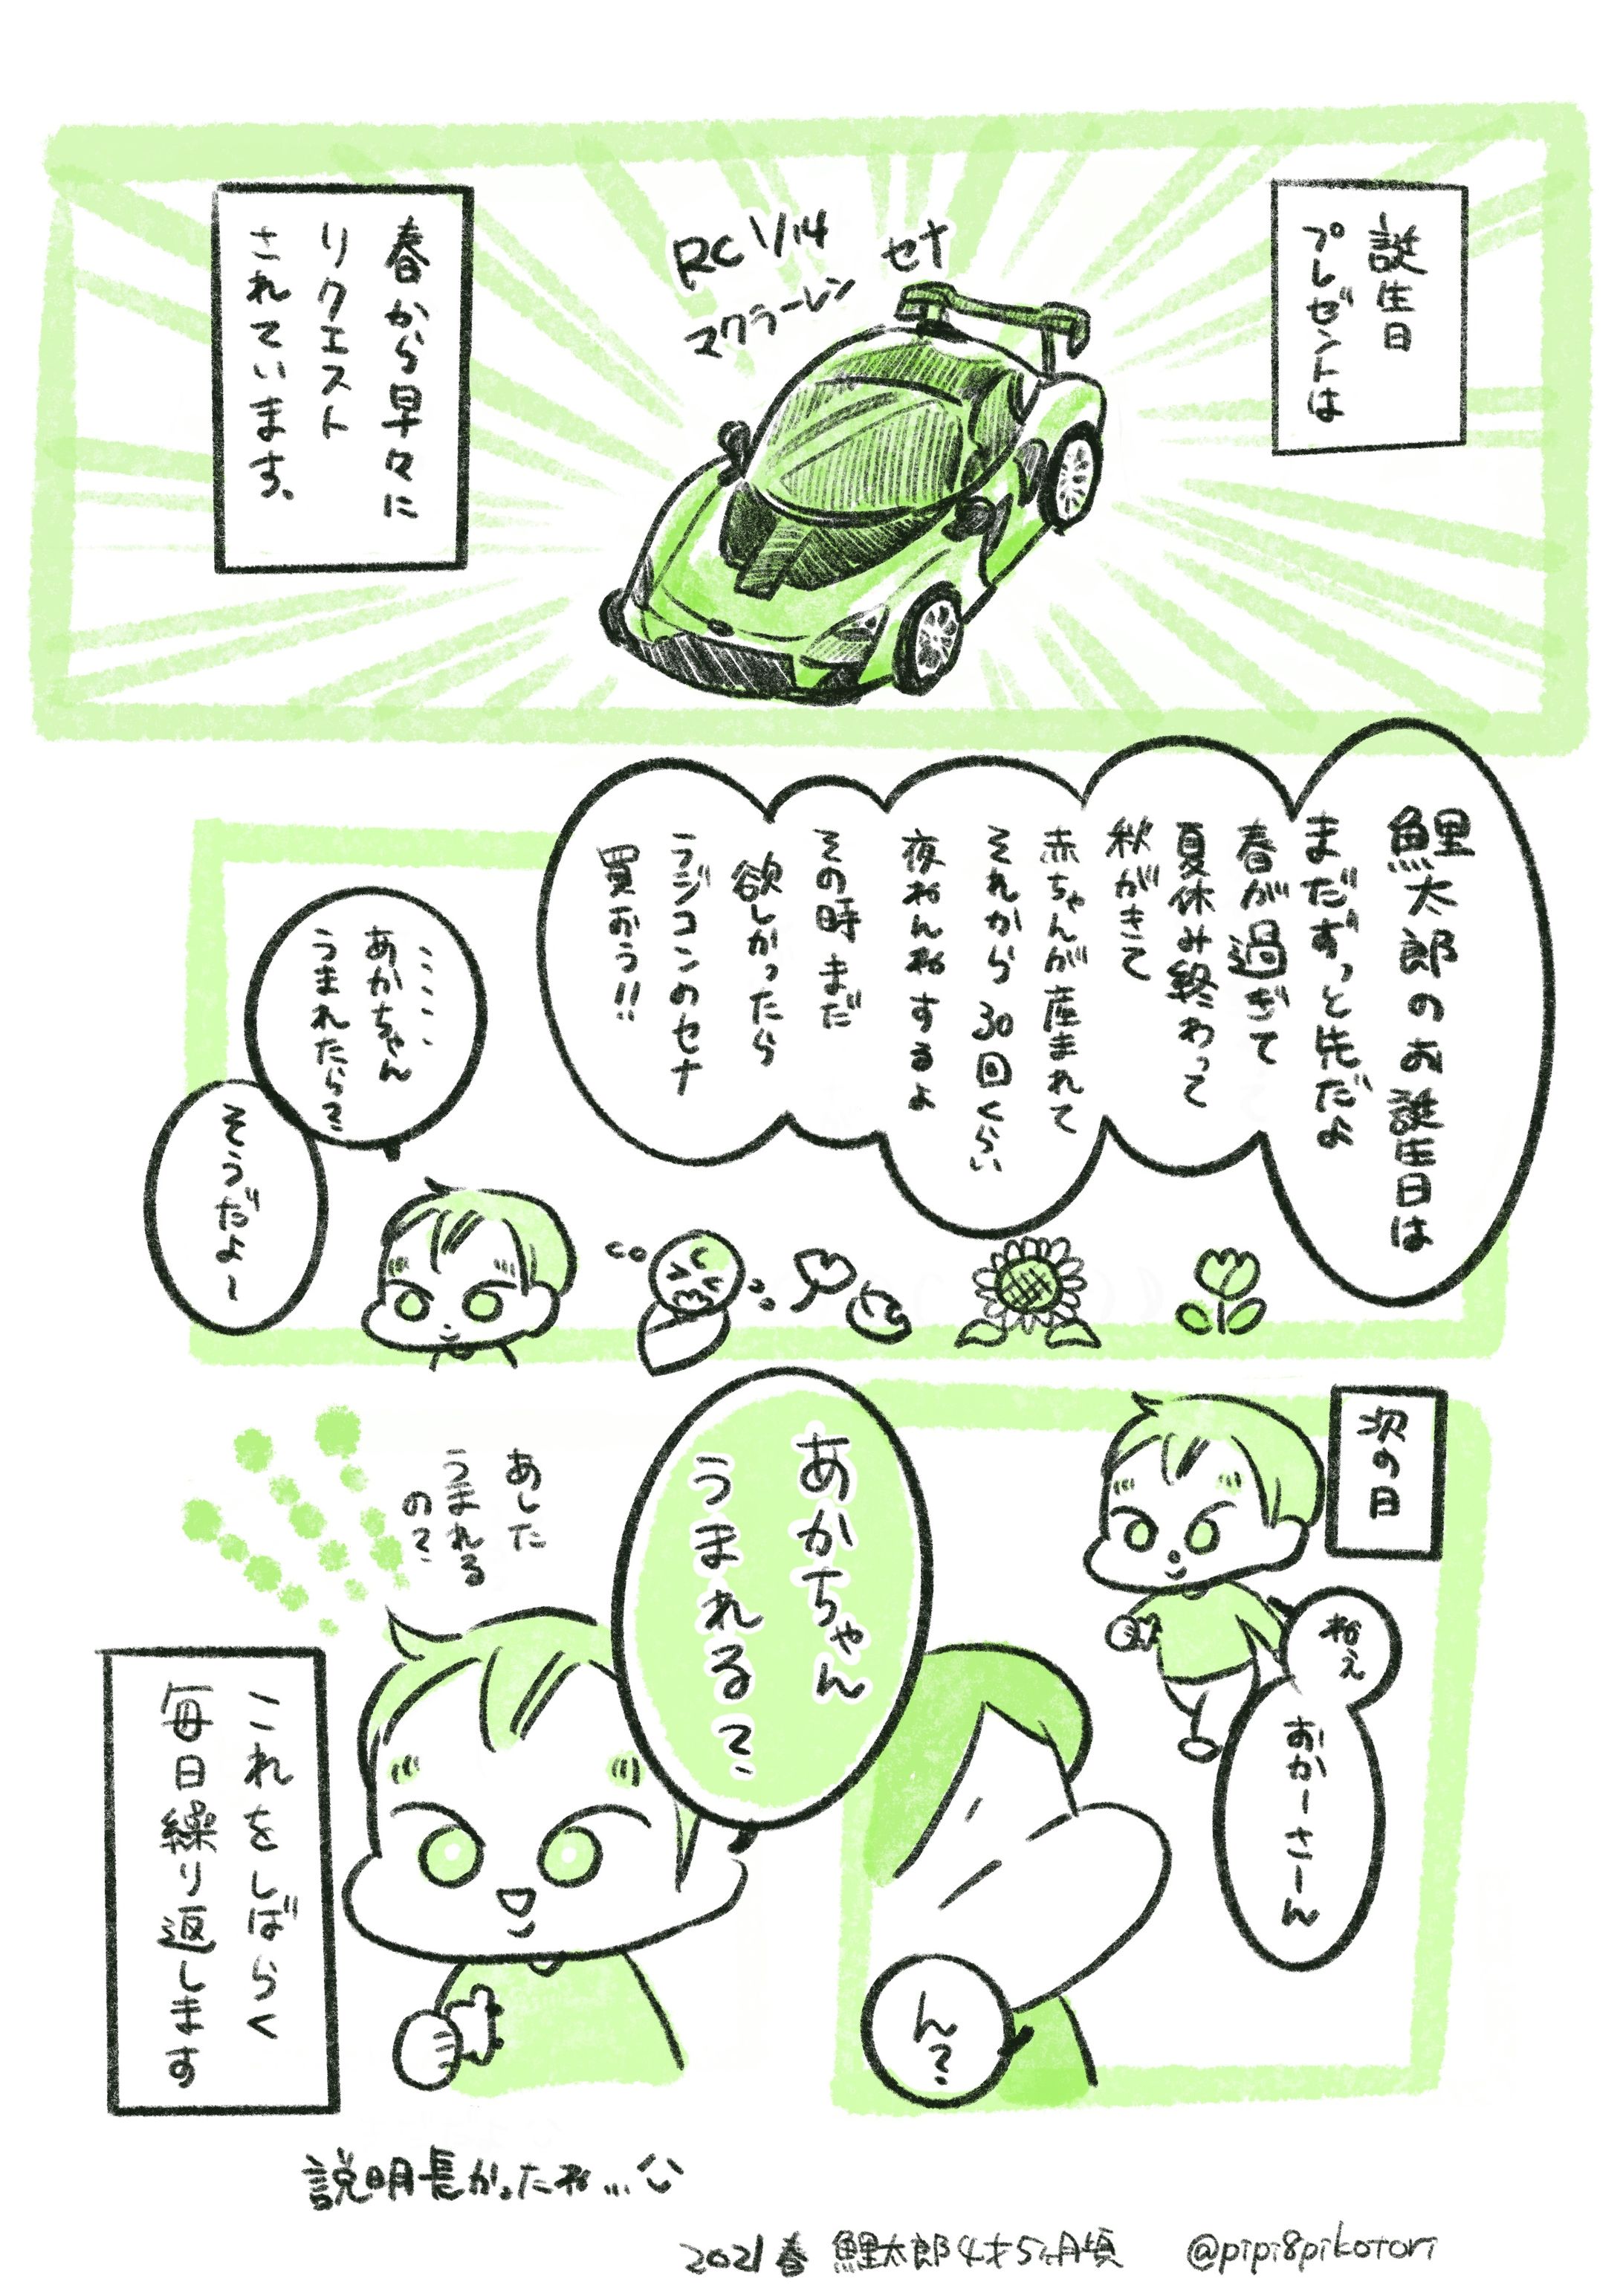 誕生日
プレゼントは
RC 1/14
マクラーレン
セナ
春から早々に
リクエスト
されています。
鯉太郎のお誕生日は
まだずっと先だよ
春が過ぎて
夏休み終わって
秋がきて
赤ちゃんが産まれて
それから30回くらい
夜ねんねするよ
その時まだ
欲しかったら
ラジコンのセナ
買おう!!
・・・・・
あかちゃん
うまれたら?
そうだよ~
次の日
ねえ
おかーさーん
ん?
あかちゃん
うまれる?
あした
うまれる
の?
これをしばらく
毎日繰り返します
説明長かったね…
2021春 鯉太郎4才5ヶ月頃 @pipi8pikotori